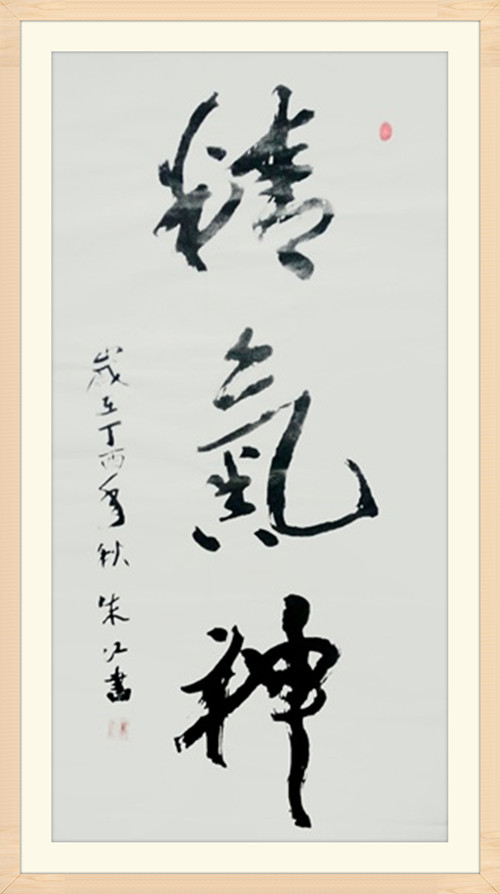 精氣神
歲在丁酉年秋朱江書